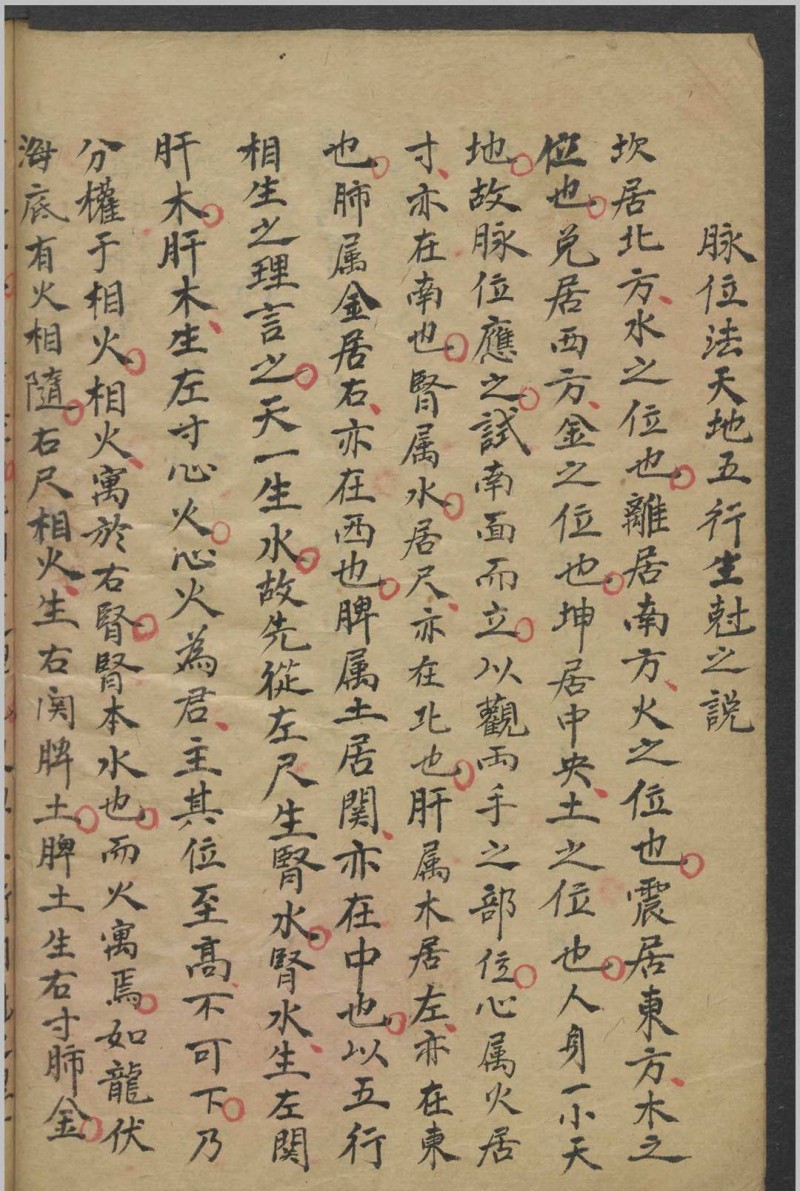 脉位法天地五行生尅之説
坎居北方水之位也離居南方火之位也震居東方木之
位也兌居西方金之位也坤居中央土之位也人身一小天
地故脉位應之試南面而立以觀两手之部位心属火居
寸亦在南也腎属水居尺亦在北也肝属木居左亦在東
也肺属金居右亦在西也脾属土居関亦在中也以五行
相生之理言之天一生水故先從左尺生腎水腎水生左関
肝木肝木生左寸心火心火為君主其位至高不可下乃
分權于相火相火寓於右腎腎本水也而火寓焉如龍伏
海底有火相隨右尺相火生右関脾土脾土生右寸肺金